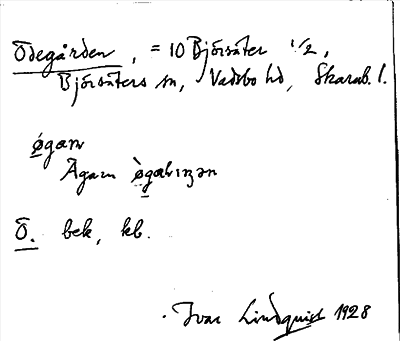 Ödegården, = 10 Björsäter 1/2,
Björsäters sn, Vadsbo hd, Skarab. l.
øgaɴ
Ö. bek, kb.
Ivar Lindquist 1928